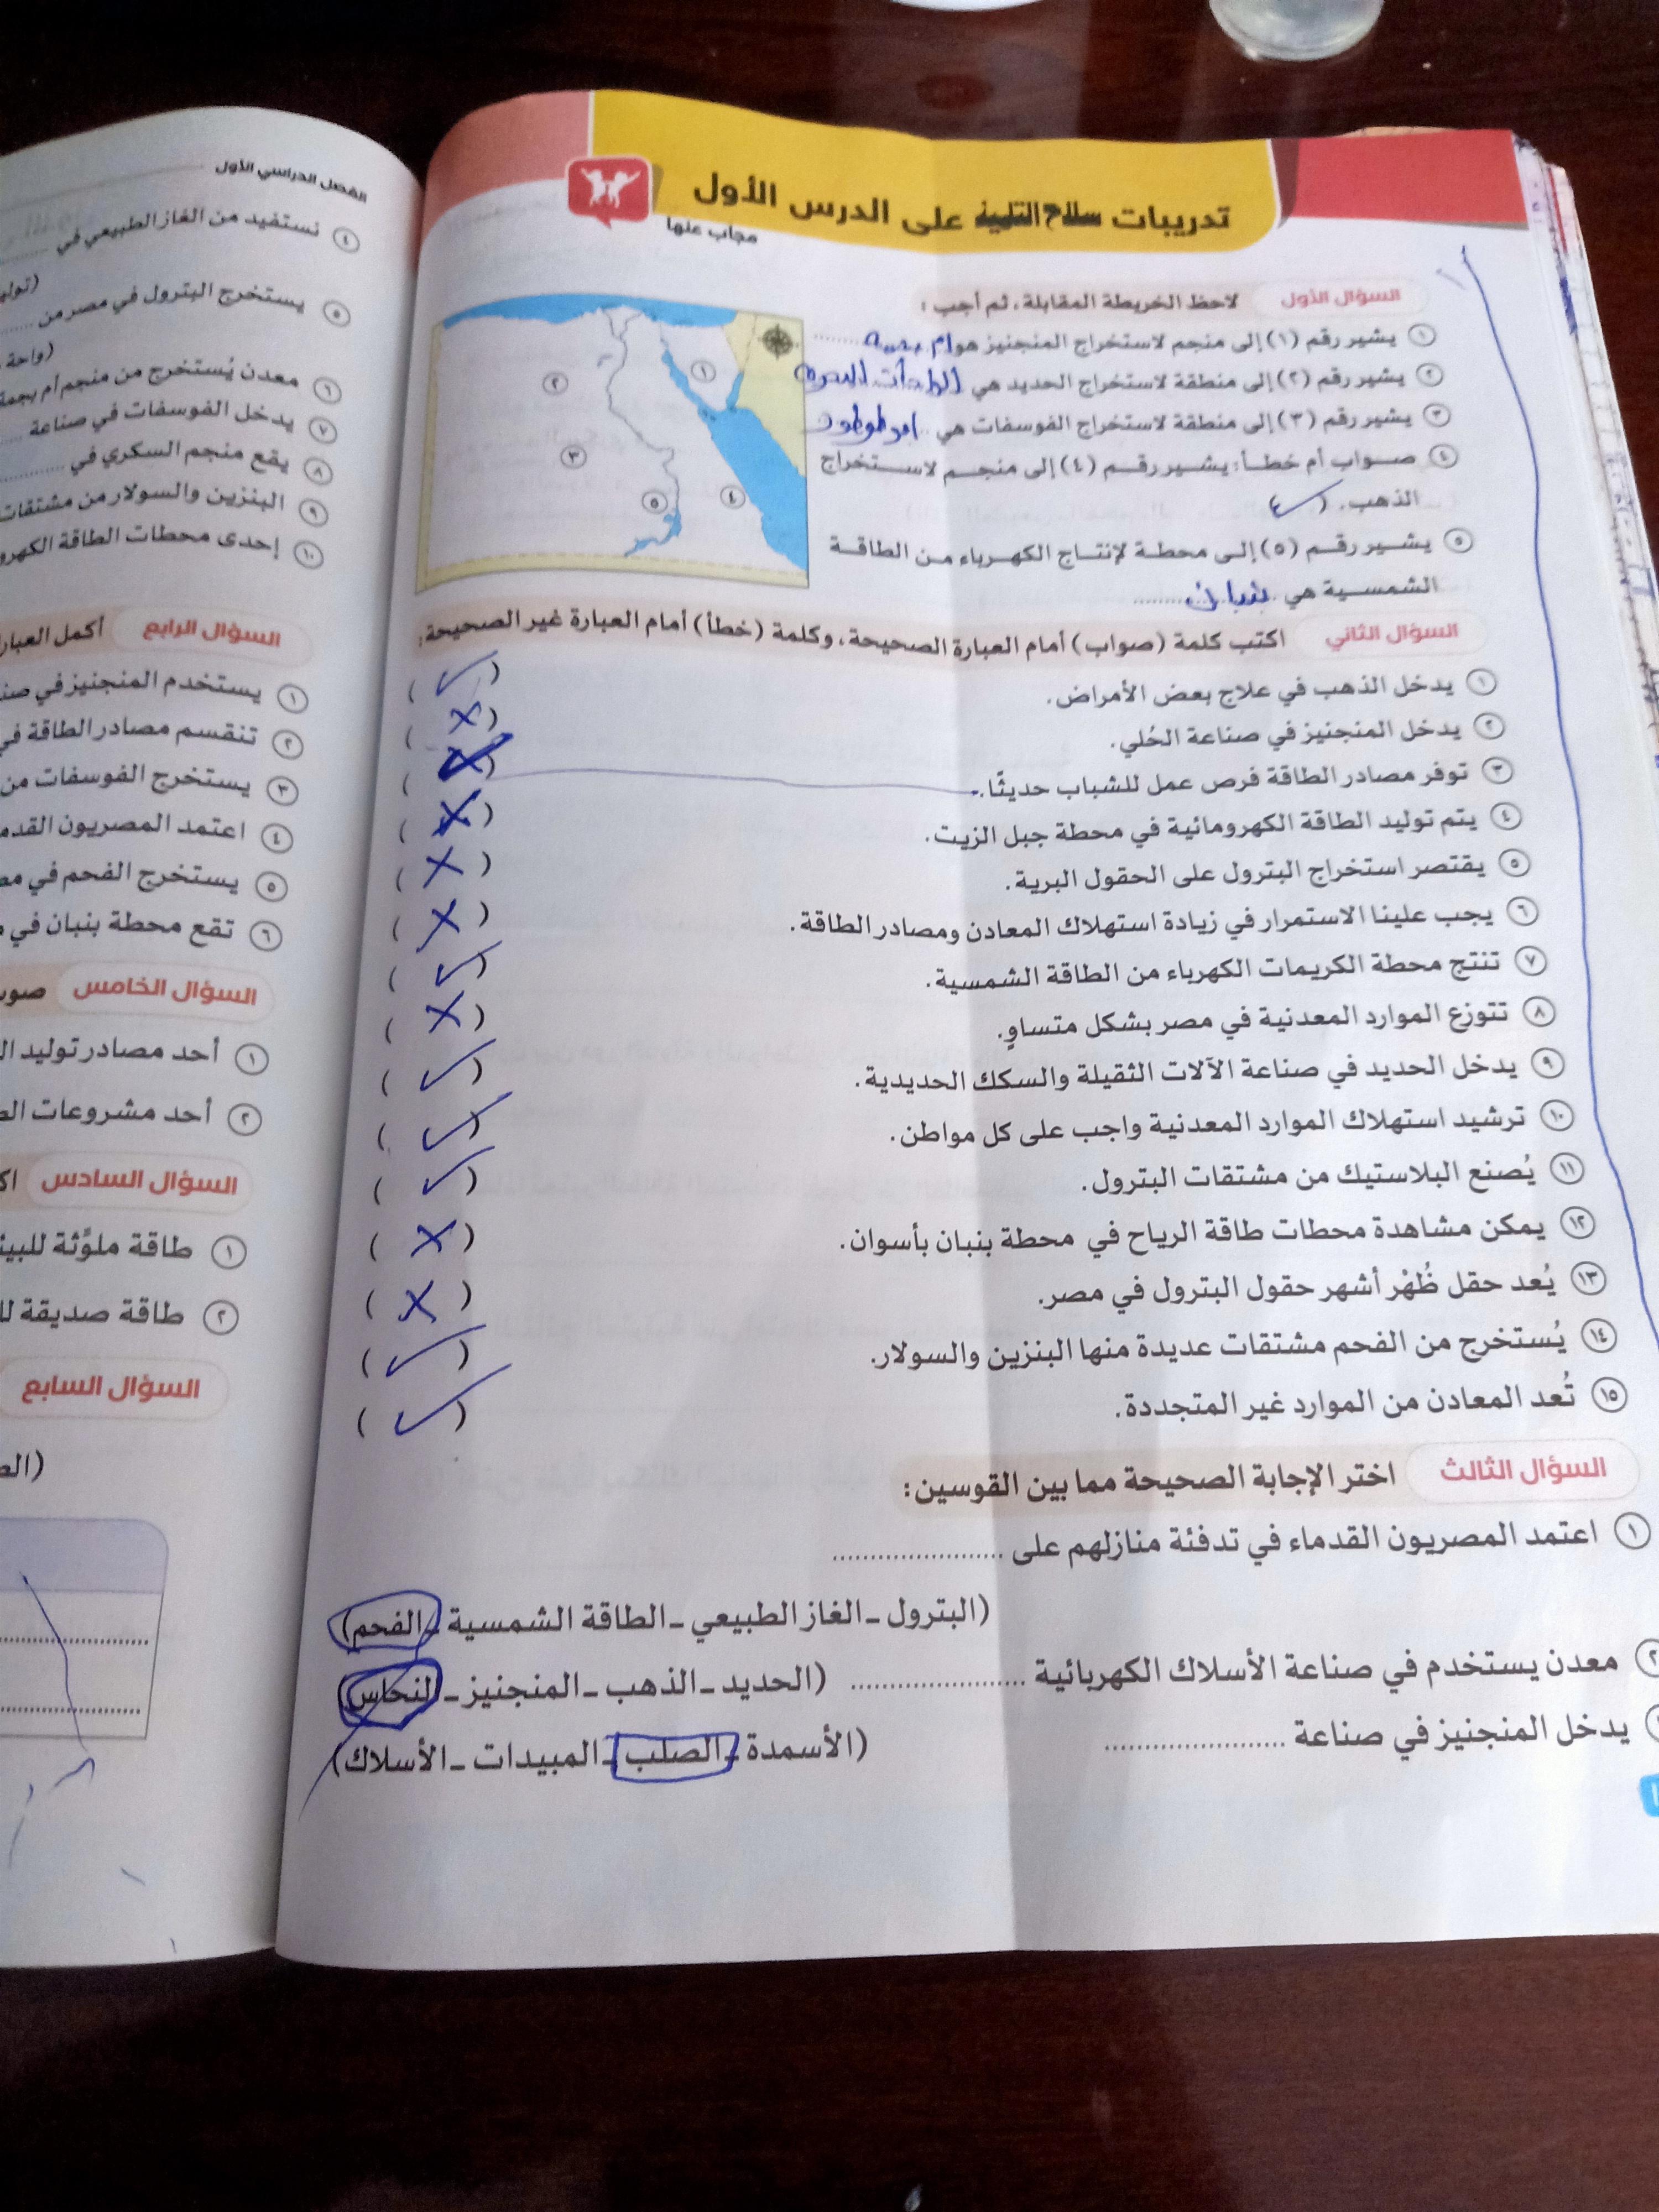 تدريبات سلاح التلميذ على الدرس الأول
مجاب عنها
السؤال الأول لاحظ الخريطة المقابلة، ثم أجب:
١ يشير رقم (١) إلى منجم لاستخراج المنجنيز هو ام بجمة
٢ يشير رقم (٢) إلى منطقة لاستخراج الحديد هي الواحات البحرية
٣ يشير رقم (٣) إلى منطقة لاستخراج الفوسفات هي ابو طرطور
٤ صواب أم خطأ: يشير رقم (٤) إلى منجم لاستخراج
الذهب. (
٥ يشير رقم (٥) إلى محطة لإنتاج الكهرباء من الطاقة
الشمسية هي بنبان
١
٢
٣
٤
٥
السؤال الثاني اكتب كلمة (صواب) أمام العبارة الصحيحة، وكلمة (خطأ) أمام العبارة غير الصحيحة:
١ يدخل الذهب في علاج بعض الأمراض. (✓)
٢ يدخل المنجنيز في صناعة الحُلي. (✗)
٣ توفر مصادر الطاقة فرص عمل للشباب حديثًا. ( )
٤ يتم توليد الطاقة الكهرومائية في محطة جبل الزيت. (✗)
٥ يقتصر استخراج البترول على الحقول البرية. (✗)
٦ يجب علينا الاستمرار في زيادة استهلاك المعادن ومصادر الطاقة. (✗)
٧ تنتج محطة الكريمات الكهرباء من الطاقة الشمسية. (✓)
٨ تتوزع الموارد المعدنية في مصر بشكل متساوٍ. (✗)
٩ يدخل الحديد في صناعة الآلات الثقيلة والسكك الحديدية. (✓)
١٠ ترشيد استهلاك الموارد المعدنية واجب على كل مواطن. (✓)
١١ يُصنع البلاستيك من مشتقات البترول. (✓)
١٢ يمكن مشاهدة محطات طاقة الرياح في محطة بنبان بأسوان. (✗)
١٣ يُعد حقل ظُهْر أشهر حقول البترول في مصر. (✗)
١٤ يُستخرج من الفحم مشتقات عديدة منها البنزين والسولار. (✓)
١٥ تُعد المعادن من الموارد غير المتجددة. (✓)
السؤال الثالث اختر الإجابة الصحيحة مما بين القوسين:
١ اعتمد المصريون القدماء في تدفئة منازلهم على ......................
(البترول - الغاز الطبيعي - الطاقة الشمسية - الفحم)
٢ معدن يستخدم في صناعة الأسلاك الكهربائية ...................... (الحديد - الذهب - المنجنيز - النحاس)
يدخل المنجنيز في صناعة ...................... (الأسمدة - الصلب - المبيدات - الأسلاك)
الفصل الدراسي الأول
٤ نستفيد من الغاز الطبيعي في
(
٥ يستخرج البترول في مصر من
(واحة
٦ معدن يُستخرج من منجم أم بجمة
٧ يدخل الفوسفات في صناعة
٨ يقع منجم السكري في
٩ البنزين والسولار من مشتقات
١٠ إحدى محطات الطاقة
السؤال الرابع أكمل
١ يستخدم المنجنيز في
٢ تنقسم مصادر الطاقة
٣ يستخرج الفوسفات من
٤ اعتمد المصريون
٥ يستخرج الفحم في
٦ تقع محطة بنبان في
السؤال الخامس
١ أحد مصادر توليد
٢ أحد مشروعات
السؤال السادس
١ طاقة ملوِّثة
٢ طاقة صديقة
السؤال السابع